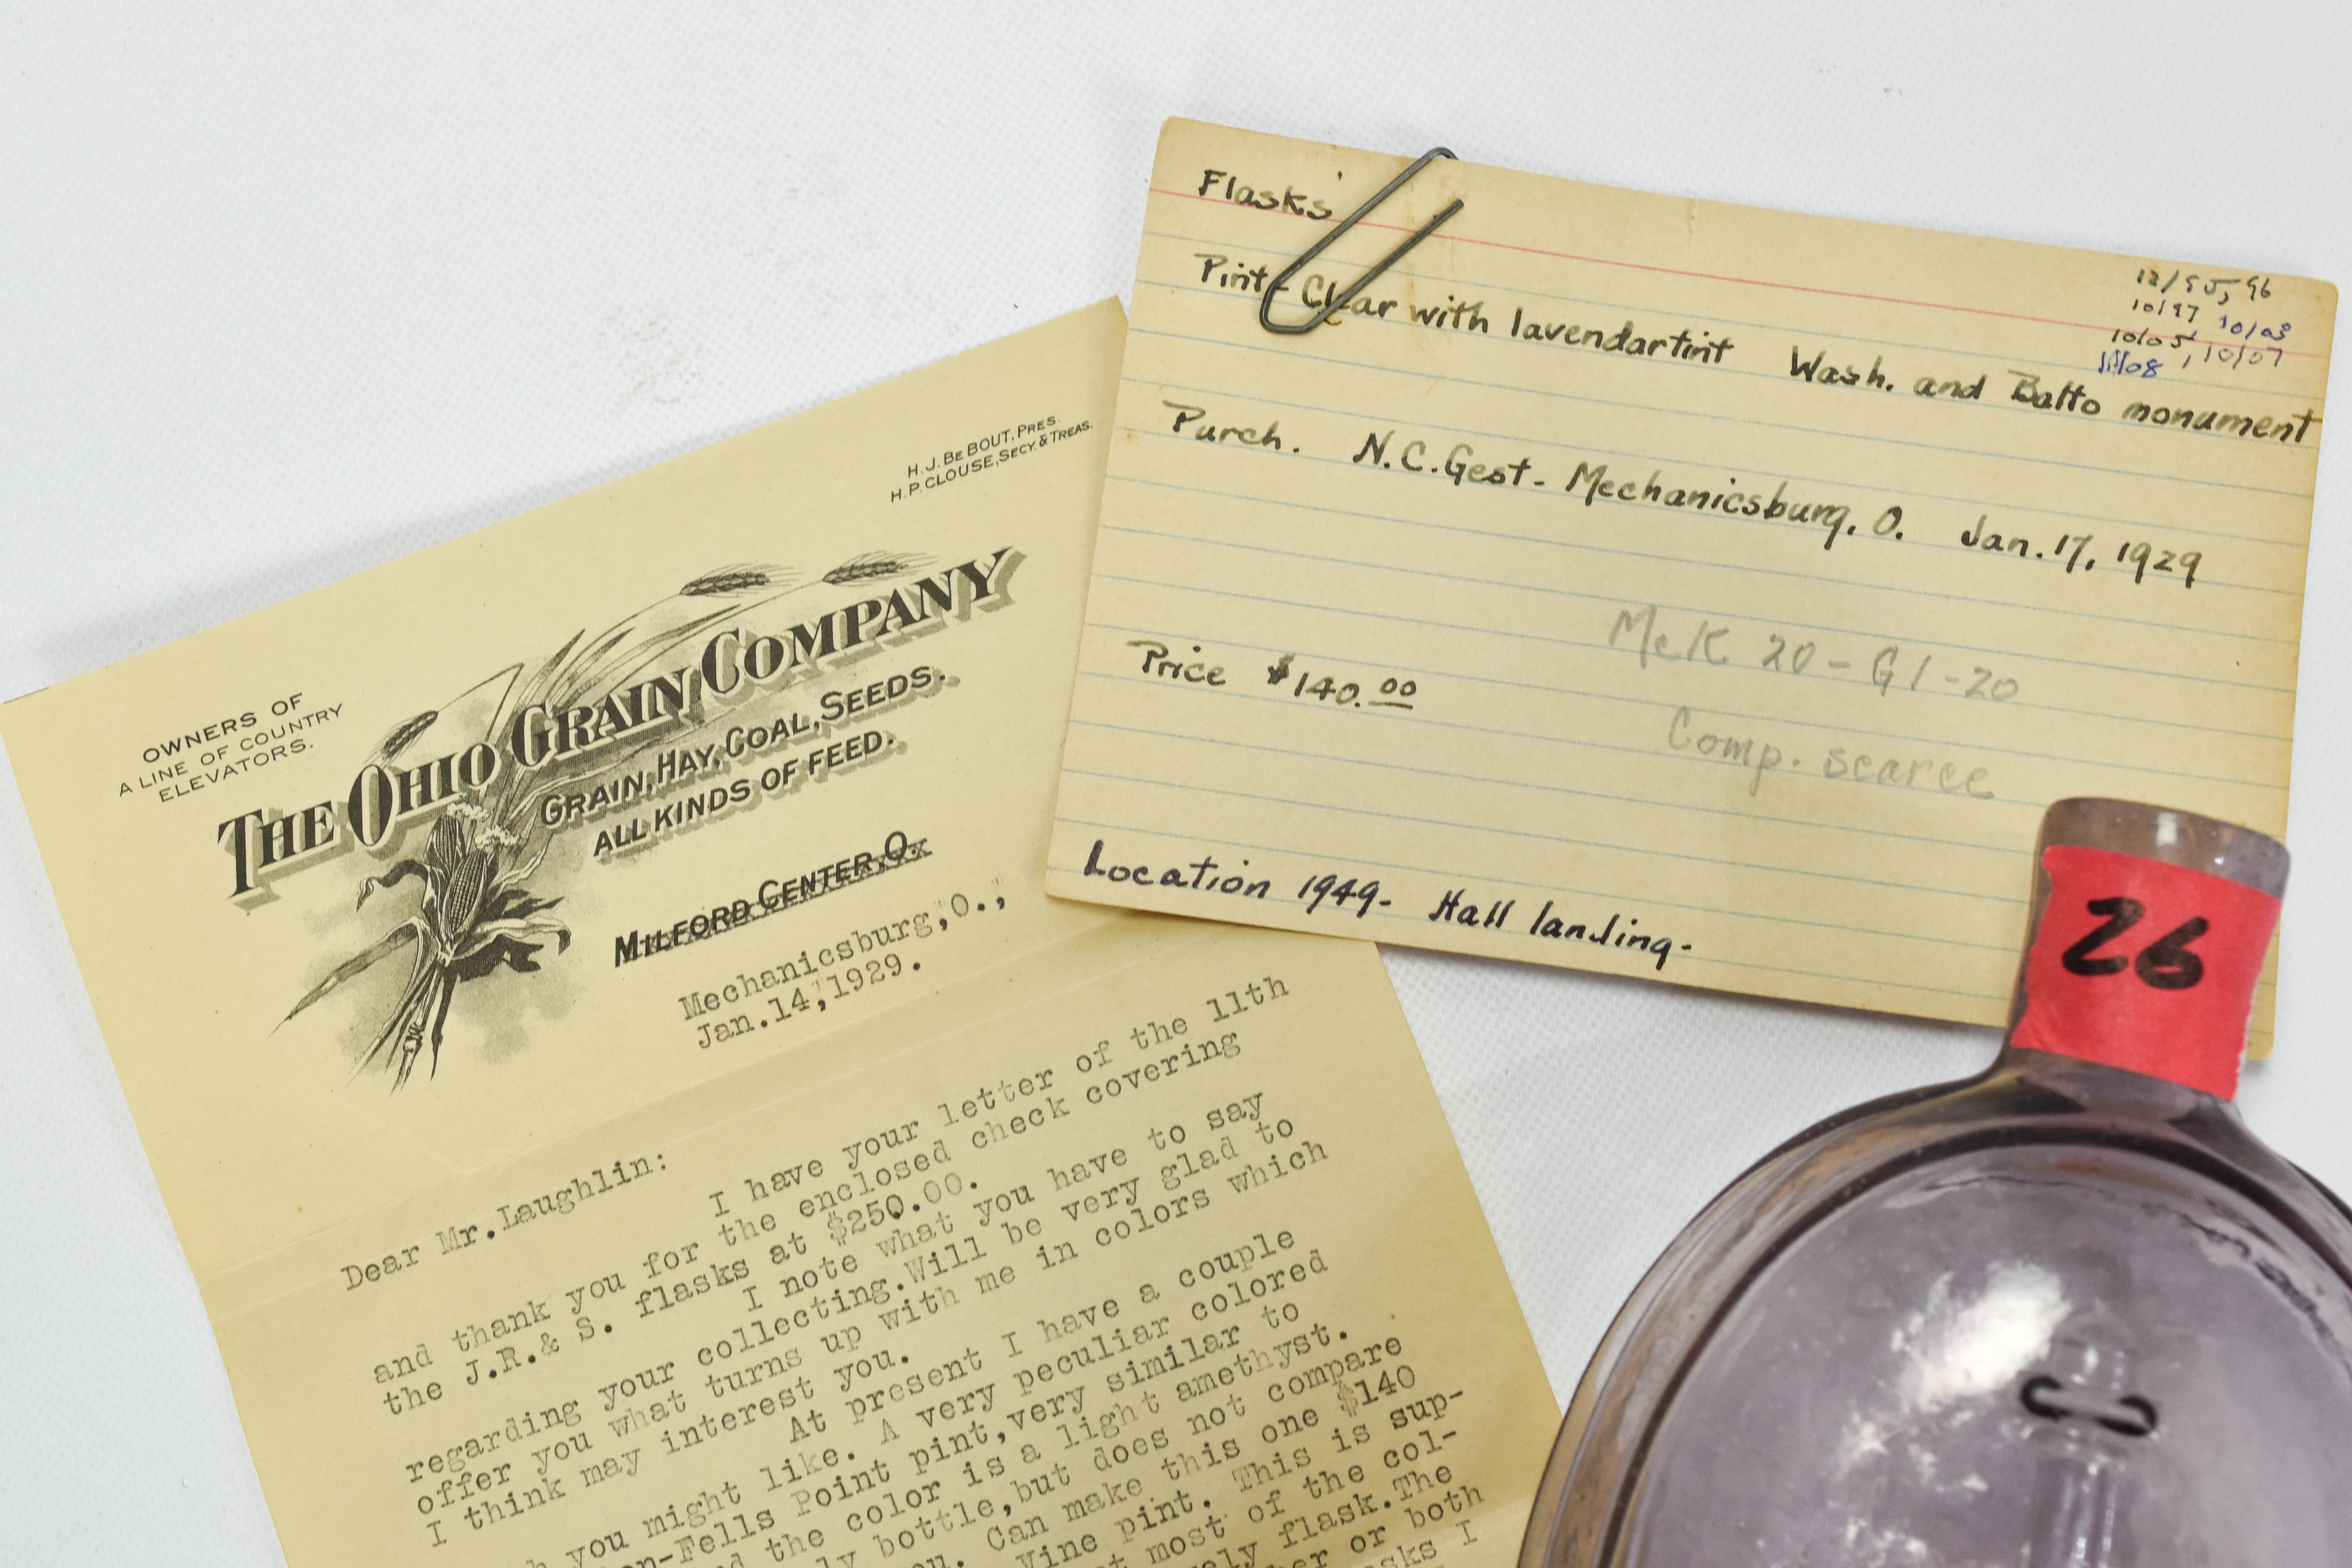 H. J. BEBOUT, PRES.
H. P. CLOUSE, SECY. & TREAS.
OWNERS OF
A LINE OF COUNTRY
ELEVATORS.
THE OHIO GRAIN COMPANY
GRAIN, HAY, COAL, SEEDS.
ALL KINDS OF FEED.
MILFORD CENTER, O.
Mechanicsburg,O.,
Jan.14,1929.
Dear Mr.Laughlin:
I have your letter of the 11th
and thank you for the enclosed check covering
the J.R.& S. flasks at $250.00.
I note what you have to say
regarding your collecting.Will be very glad to
offer you what turns up with me in colors which
I think may interest you.
At present I have a couple
you might like. A very peculiar colored
-Fells Point pint,very similar to
the color is a light amethyst.
bottle,but does not compare
Can make this one $140
Vine pint. This is sup-
most of the col-
flask.The
or both
I
Flasks
Pint - Clear with lavendartint Wash. and Balto monument
12/95, 96
10/97 10/03
10/05, 10/07
11/08
Purch. N.C.Gest - Mechanicsburg, O. Jan. 17, 1929
McK 20 - G1-20
Price $140.00
Comp. scarce
Location 1949 - Hall landing -
26